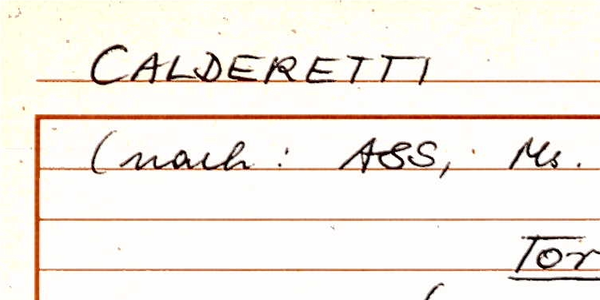 CALDERETTI
(nach: ASS, Ms.
Tor